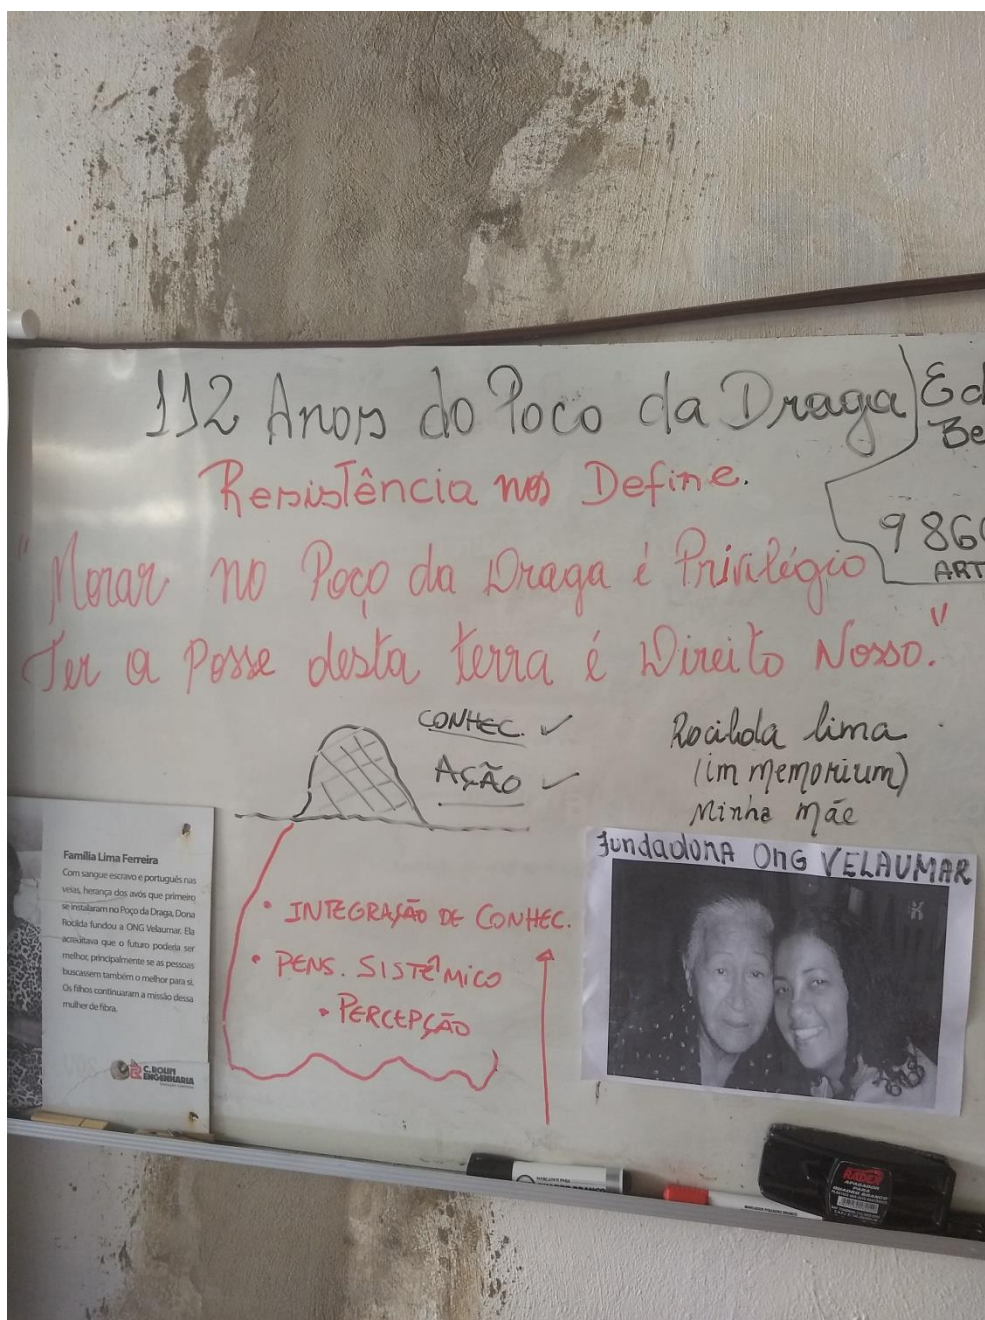 112 Anos do Poco da Draga
Resistência nos Define.
"Morar no Poço da Draga é Privilégio
Ter a Posse desta terra é Direito Nosso."
986
ART
CONHEC. ✓
AÇÃO ✓
Rocilda lima
(im memorium)
Minha mãe
fundadora ONG VELAUMAR
• INTEGRAÇÃO DE CONHEC.
• PENS. SISTÊMICO
• PERCEPÇÃO
Família Lima Ferreira
Com sangue escravo e português nas
veias, herança dos avós que primeiro
se instalaram no Poço da Draga, Dona
Rocilda fundou a ONG Velaumar. Ela
acreditava que o futuro poderia ser
melhor, principalmente se as pessoas
buscassem também o melhor para si.
Os filhos continuaram a missão dessa
mulher de fibra.
C.ROLIM
ENGENHARIA
RADEX
APAGADOR
PARA
QUADRO BRANCO